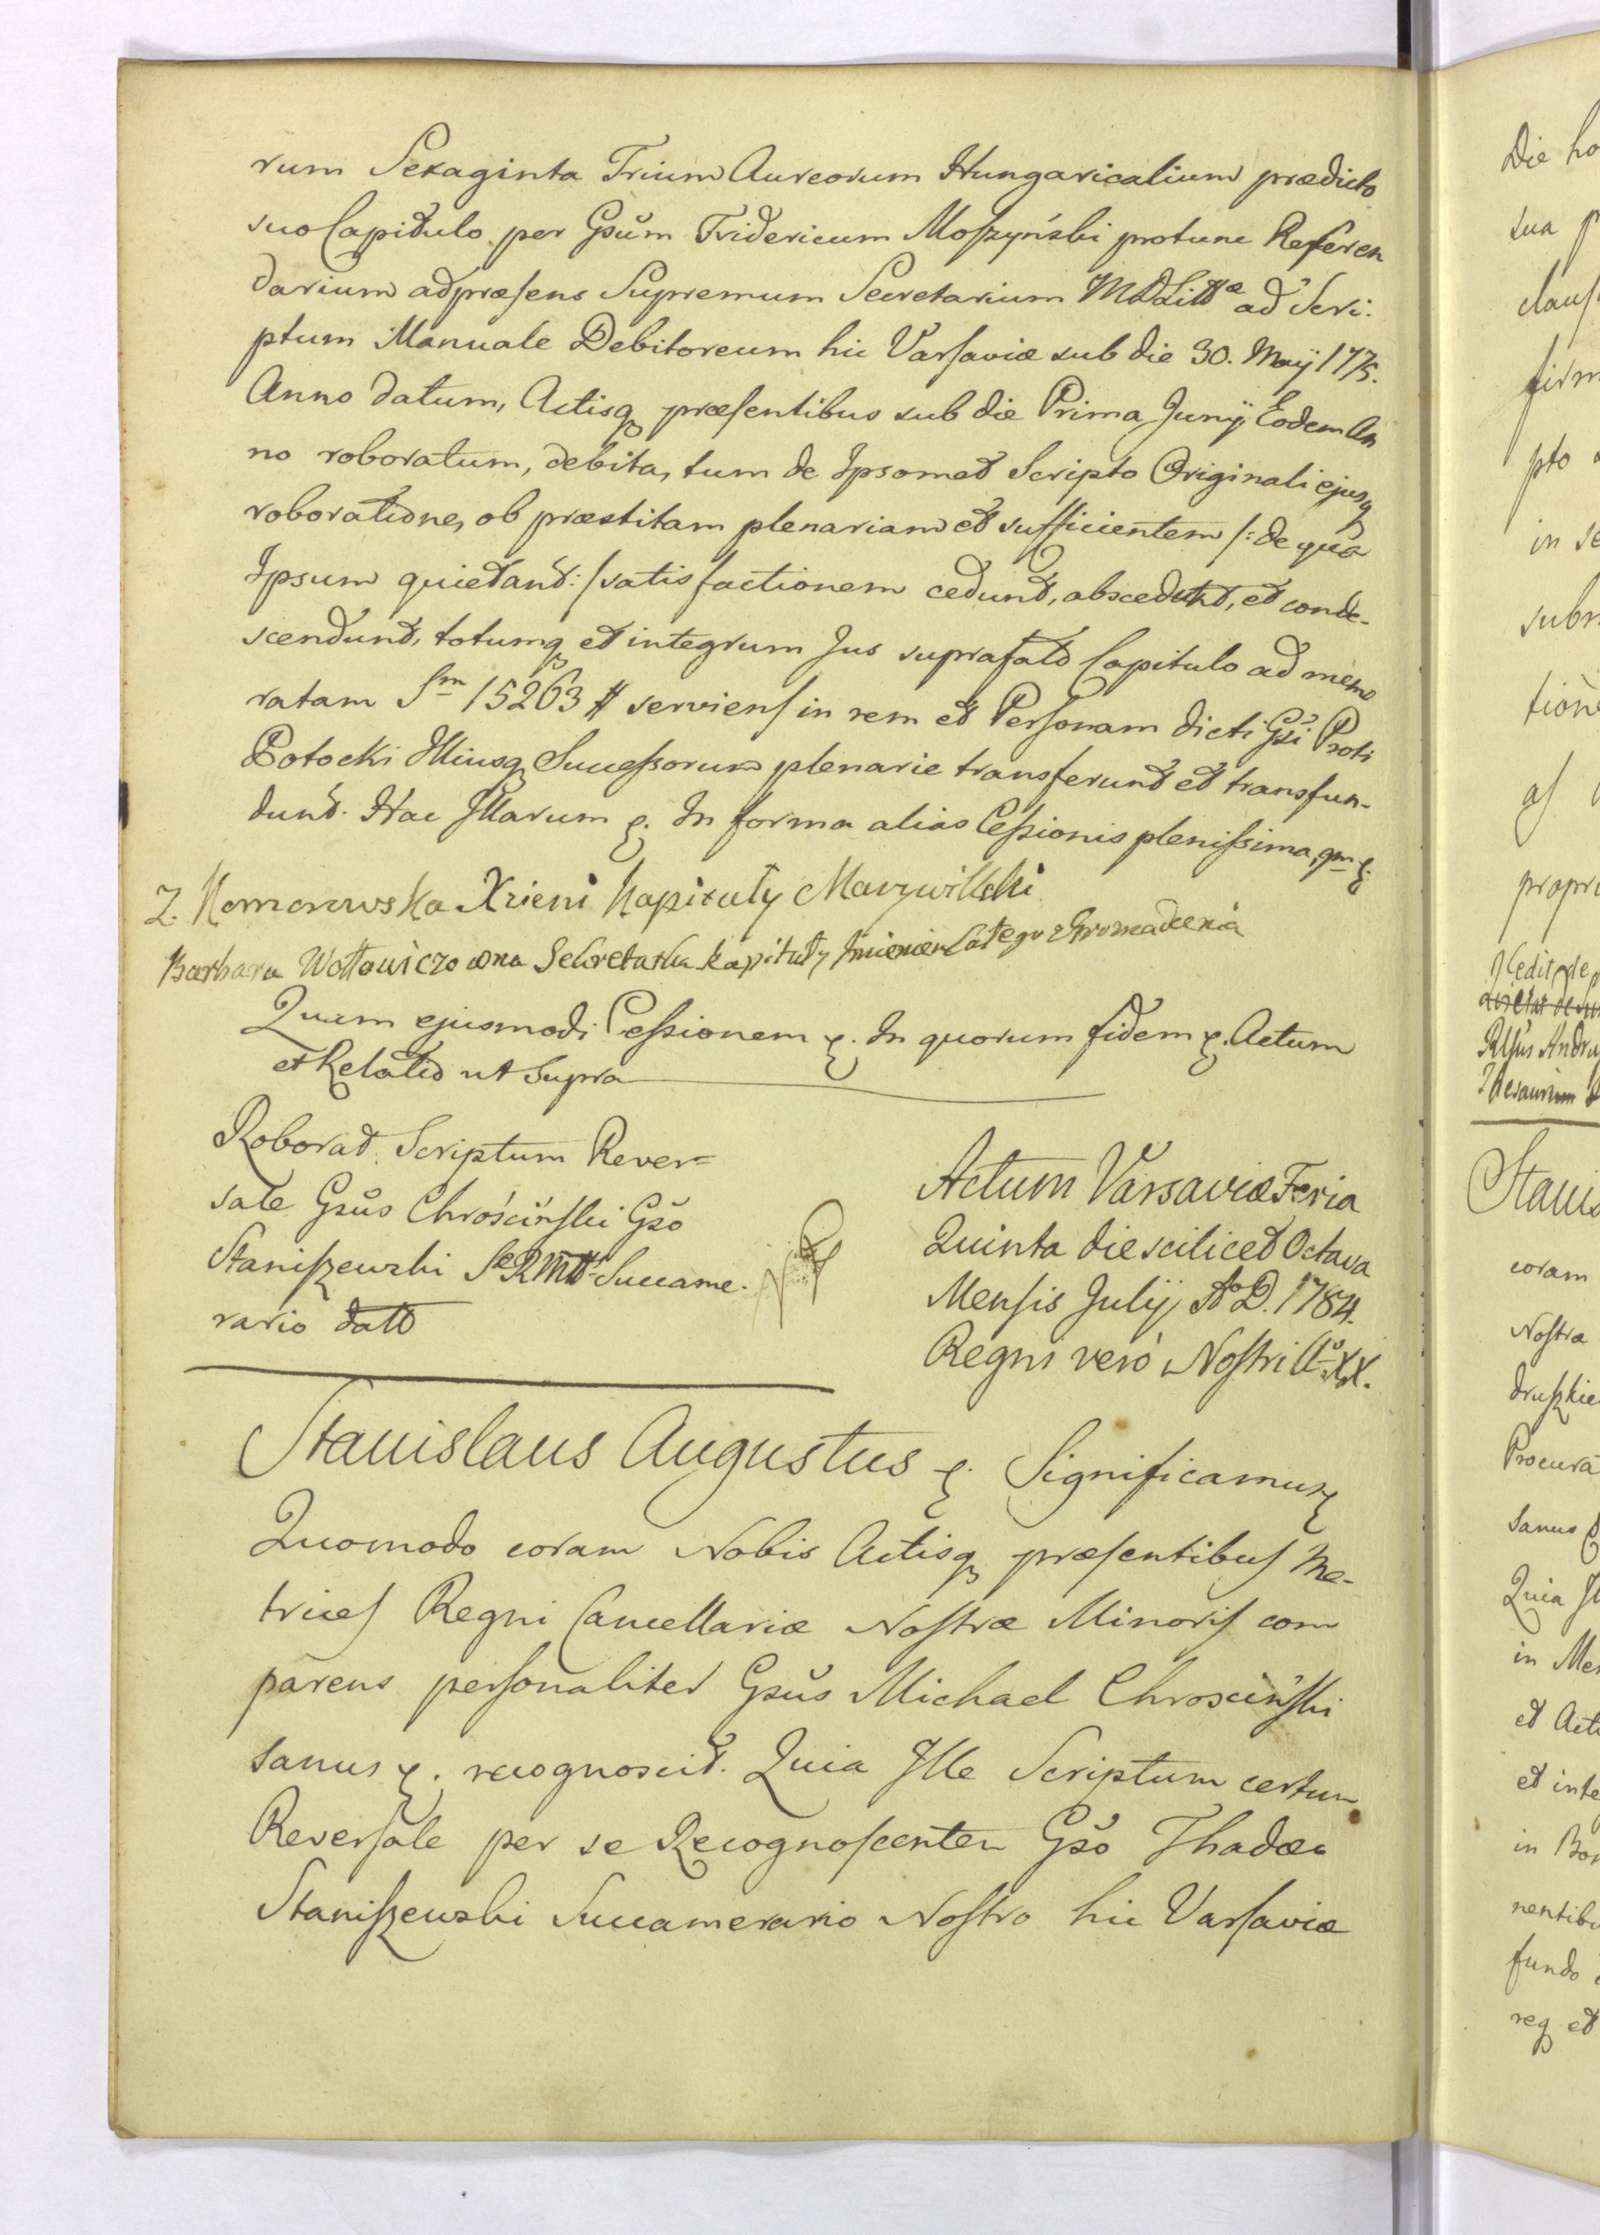 rum Sexaginta Trium Aureorum Hungaricalium prædicto
suo Capitulo per Gsum Fridericum Moszyński protunc Referen
darium adpræsens Supremum Secretarium MDLittæ ad Scri:
ptum Manuale Debitoreum hic Varsaviæ sub die 30. Maÿ 1775.
Anno datum, Actisq præsentibus sub die Prima Junÿ Eodem An
no roboratum, debita, tum de Ipsomet Scripto Originali ejusq
roboratione, ob præstitam plenariam et sufficientem /: de qua
Ipsum quietant :/ satisfactionem cedunt, abscedunt, et conde-
scendunt, totumq et integrum Jus suprafato Capitulo ad memo
ratam Sm 15263 # serviens in rem et Personam dicti Gsi Proti
Potocki Illiusq Successorum plenarie transferunt et transfun-
dunt. Hac Illarum &. In forma alias Cessionis plenissima, qm &.
Z. Komorowska Xieni Kapituły Marywilski
Barbara Wołłowiczo wna Sekretarka kapituły Imieniem całego zgromadzenia
Quam ejusmodi Cessionem &. In quorum fidem &. Actum
et Relatio ut Supra
Roborat Scriptum Rever=
sale Gsus Chrościński Gso
Staniszewski Succame.
rario datt
Actum Varsaviæ Feria
Quinta die scilicet Octava
Mensis Julÿ Ao D. 1784.
Regni vero Nostri Ao XX.
Stanislaus Augustus &. Significamus &
Quomodo coram Nobis Actisq præsentibus Me-
trices Regni Cancellariæ Nostræ Minoris com
parens personaliter Gsus Michael Chrościński
sanus &. recognoscit. Quia Ille Scriptum certum
Reversale per se Recognoscentem Gso Thadæo
Staniszewski Succamerario Nostro hic Varsaviæ
Die ho
sua p
claus
firm
pto
in se
subm
tione
as
propri
Stanis
coram
Nostræ
druszkie
Procura
sanus
Quia Il
in Me
et Acti
et inte
in Bon
nentibu
fundo
req et